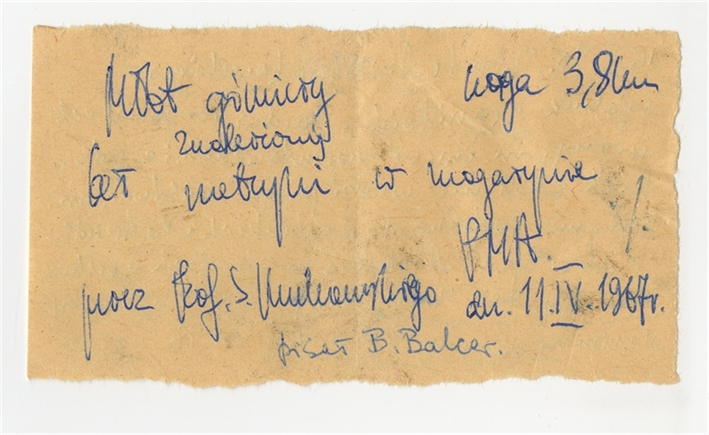 Młot górniczy waga 3,8
znaleziony
bez metryki w magazynie
PMA.
przez Prof. S. Krukowskiego dn. 11.IV.1967r.
pisał B. Balcer.